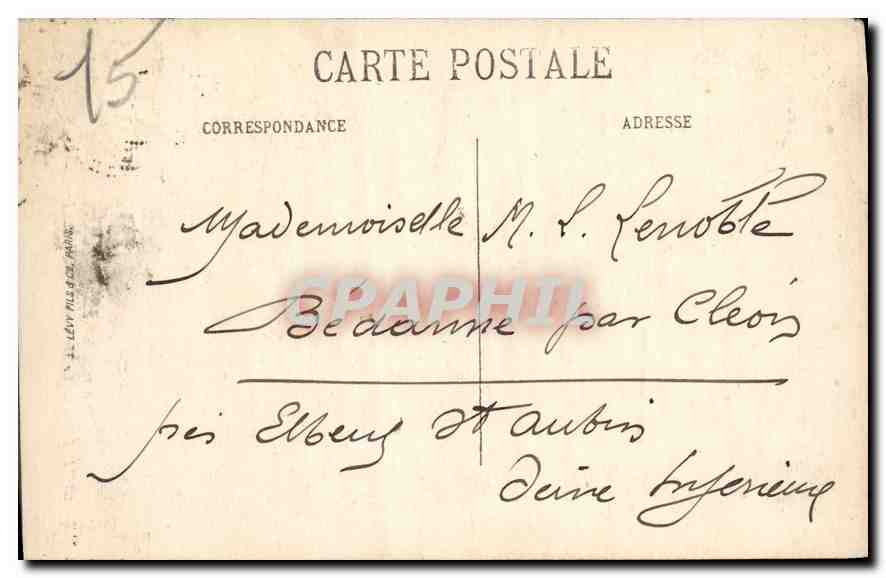 15
CARTE POSTALE
CORRESPONDANCE
ADRESSE
LÉVY FILS & Cie, PARIS.
Mademoiselle M. L. Lenoble
CPAPHIL
Bédanne par Cléon
près Elbeuf St Aubin
Seine Inferieure